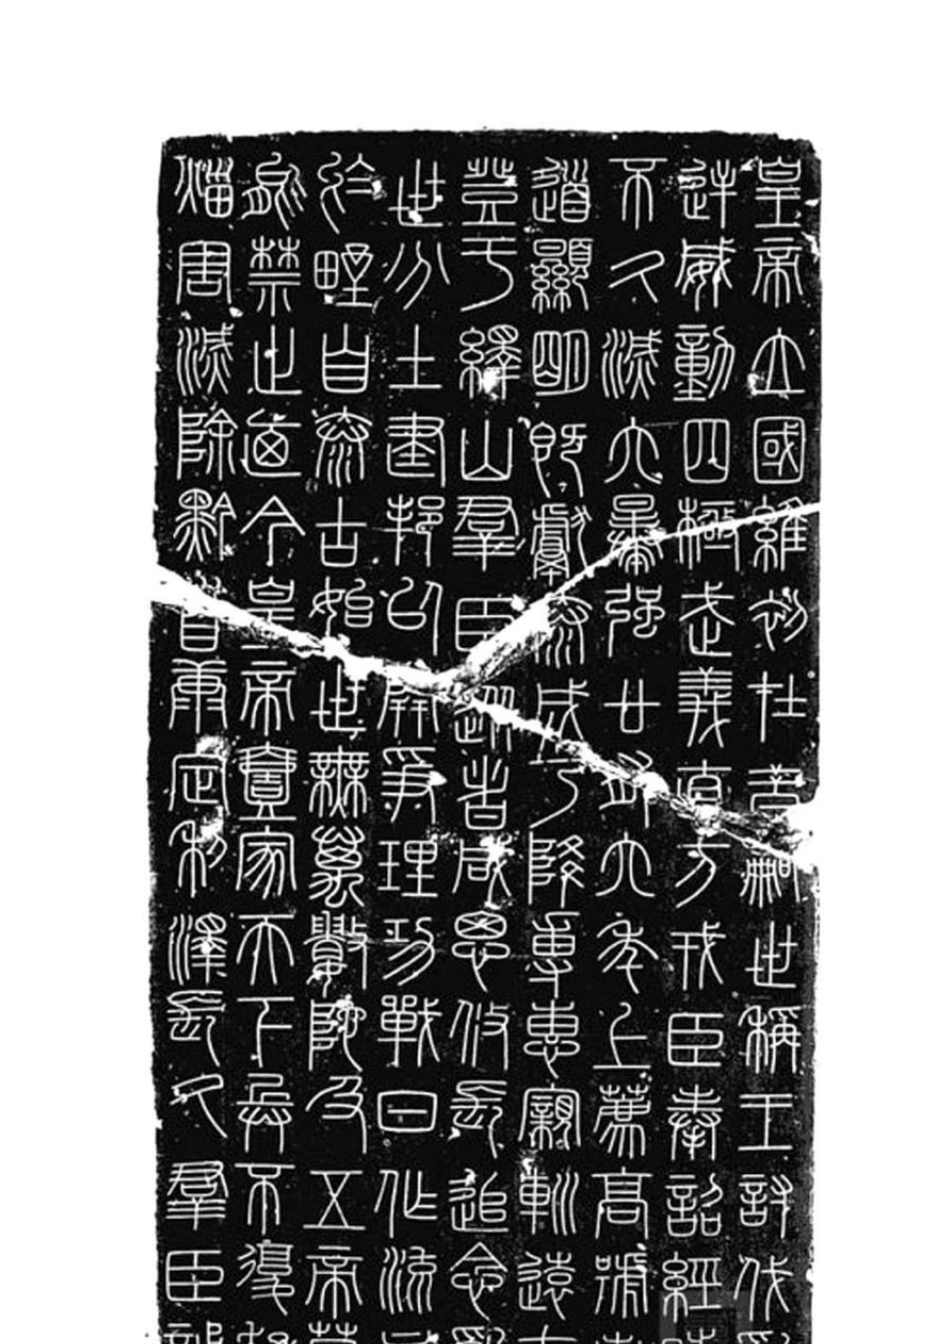 皇帝立國維初在昔嗣世稱王討伐
逆威動四極武義直方戎臣奉詔經
不久滅六暴強廿有六年上薦高號
道顯明既獻泰成乃降專惠親巡遠
登于繹山羣臣從者咸思攸長追念
世分土建邦以開爭理功戰日作流
於野自泰古始世無萬數陀及五帝
能禁止迺今皇帝壹家天下兵不復
災害滅除黔首康定利澤長久羣臣